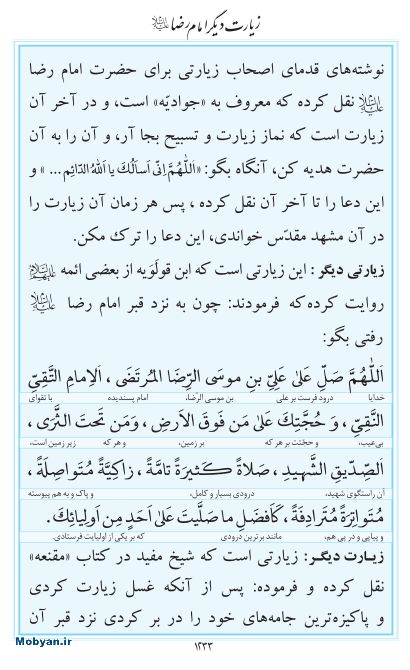 زیارت دیگر امام رضا علیه السلام
نوشته‌های قدمای اصحاب زیارتی برای حضرت امام رضا
علیه السلام نقل کرده که معروف به «جوادیّه» است، و در آخر آن
زیارت است که نماز زیارت و تسبیح بجا آر، و آن را به آن
حضرت هدیه کن، آنگاه بگو: «اَللّٰهُمَّ اِنّی اَسأَلُكَ یا اَللهُ الدّائِم...» و
این دعا را تا آخر آن نقل کرده ، پس هر زمان آن زیارت را
در آن مشهد مقدّس خواندی، این دعا را ترك مکن.
زیارتی دیگر : این زیارتی است که ابن قولَوَیه از بعضی ائمه علیهم السلام
روایت کرده‌که فرمودند: چون به نزد قبر امام رضا علیه السلام
رفتی بگو:
اَللّٰهُمَّ صَلِّ عَلیٰ عَلِیِّ بنِ موسَی الرِّضَا المُرتَضیٰ ، اَلاِمامِ التَّقِیِّ
خدایا درود فرست بر علی بن موسی الرّضا، امام پسندیده با تقوای
النَّقِیِّ ، وَ حُجَّتِكَ عَلیٰ مَن فَوقَ الاَرضِ ، وَمَن تَحتَ الثَّریٰ ،
بی‌عیب، و حجّتت بر هر که بر زمین، و هر که زیر زمین است،
اَلصِّدّیقِ الشَّهیدِ ، صَلاةً کَثیرَةً تامَّةً ، زاکِیَةً مُتَواصِلَةً ،
آن راستگوی شهید، درودی بسیار و کامل، و پاک و به هم پیوسته
مُتَواتِرَةً مُتَرادِفَةً ، کَاَفضَلِ ما صَلَّیتَ عَلیٰ اَحَدٍ مِن اَولِیائِكَ.
و پیاپی و در پی هم، مانند برترین درودی که بر یکی از اولیایت فرستادی.
زیـارت دیگـر: زیارتی است که شیخ مفید در کتاب «مقنعه»
نقل کرده و فرموده: پس از آنکه غسل زیارت کردی
و پاکیزه‌ترین جامه‌های خود را در بر کردی نزد قبر آن
۱۲۳۳
Mobyan.ir